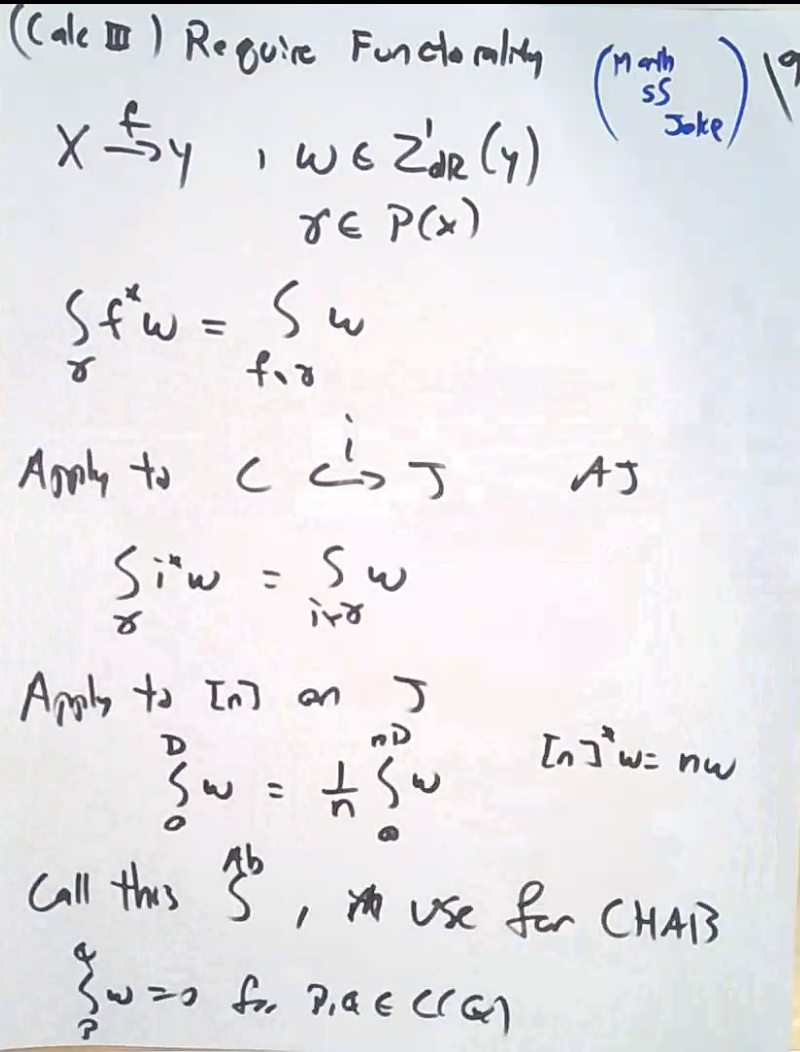 (Calc III) Require Functorality (Math SS Joke) \9
X →^f Y , ω ∈ Z^1_dR (Y)
γ ∈ P(X)
∫_γ f^*ω = ∫_{f_*γ} ω
Apply to C ↪^i J AJ
∫_γ i^*ω = ∫_{i_*γ} ω
Apply to [n] on J
∫_0^D ω = 1/n ∫_0^{nD} ω [n]^*ω = nω
Call this ∫^{Ab} , use for CHAB
∫_P^Q ω = 0 for P,Q ∈ C(Q)